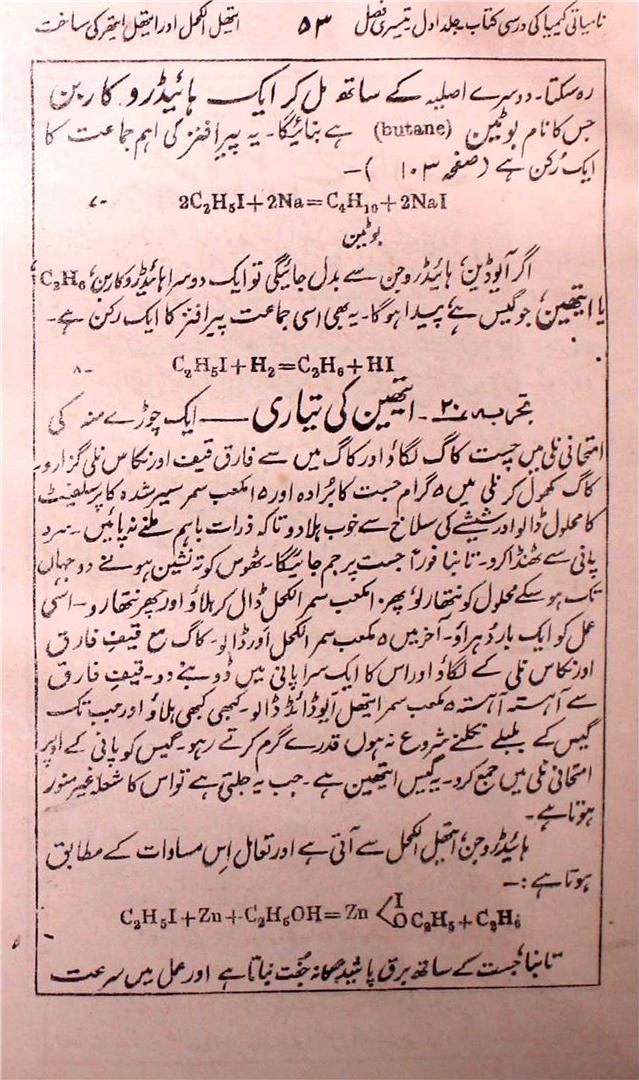 نامیاتی کیمیا کی درسی کتاب۔ جلد اول۔ تیسری فصل ۵۳ ایتھل الکحل اور ایتھل ایتھر کی ساخت
رہ سکتا۔ دوسرے اصلیہ کے ساتھ مل کر ایک ہائیڈروکاربن
جس کا نام بوٹین (butane) ہے بنائیگا۔ یہ پیرافنز کی اہم جماعت کا
ایک رُکن ہے (صفحہ ۱۰۳)۔
2C₂H₅I+2Na=C₄H₁₀+2NaI ۷۔
بوٹین
اگر آیوڈین، ہائیڈروجن سے بدل جائیگی تو ایک دوسرا ہائیڈروکاربن، C₂H₆،
یا ایتھین، جو گیس ہے، پیدا ہوگا۔ یہ بھی اسی جماعت پیرافنز کا ایک رکن ہے۔
C₂H₅I+H₂=C₂H₆+HI ۸۔
تجربہ ۲۰۔ ایتھین کی تیاری — ایک چوڑے منہ کی
امتحانی نلی میں چست کاگ لگاؤ اور کاگ میں سے فارق قیف اور نکاس نلی گزارو۔
کاگ کھول کر نلی میں ۵ گرام جست کا بُرادہ اور ۱۵ مکعب سمر سیر شدہ کاپر سلفیٹ
کا محلول ڈالو اور شیشے کی سلاخ سے خوب ہلا دو تاکہ ذرات باہم ملنے نہ پائیں۔ سرد
پانی سے ٹھنڈا کرو۔ تانبا فوراً جست پر جم جائیگا۔ ٹھوس کو تہ نشین ہونے دو جہاں
تک ہو سکے محلول کو نتھار لو، پھر ۱۰ مکعب سمر الکحل ڈال کر ہلاؤ اور پھر نتھارو۔ اسی
عمل کو ایک بار دُہراؤ۔ آخر میں ۵ مکعب سمر الکحل اور ڈالو۔ کاگ مع قیفِ فارق
اور نکاس نلی کے لگاؤ اور اس کا ایک سرا پانی میں ڈوبنے دو۔ قیفِ فارق
سے آہستہ آہستہ ۵ مکعب سمر ایتھل آیوڈائڈ ڈالو۔ کبھی کبھی ہلاؤ اور جب تک
گیس کے بلبلے نکلنے شروع نہ ہوں قدرے گرم کرتے رہو۔ گیس کو پانی کے اوپر
امتحانی نلی میں جمع کرو۔ یہ گیس ایتھین ہے۔ جب یہ جلتی ہے تو اس کا شعلہ غیر منور
ہوتا ہے۔
ہائیڈروجن، ایتھل الکحل سے آتی ہے اور تعامل اِس مساوات کے مطابق
ہوتا ہے:۔
C₂H₅I+Zn+C₂H₅OH=Zn<I OC₂H₅+C₂H₆
تانبا، جست کے ساتھ برق پاشیدگانہ جُفت بناتا ہے اور عمل میں سرعت